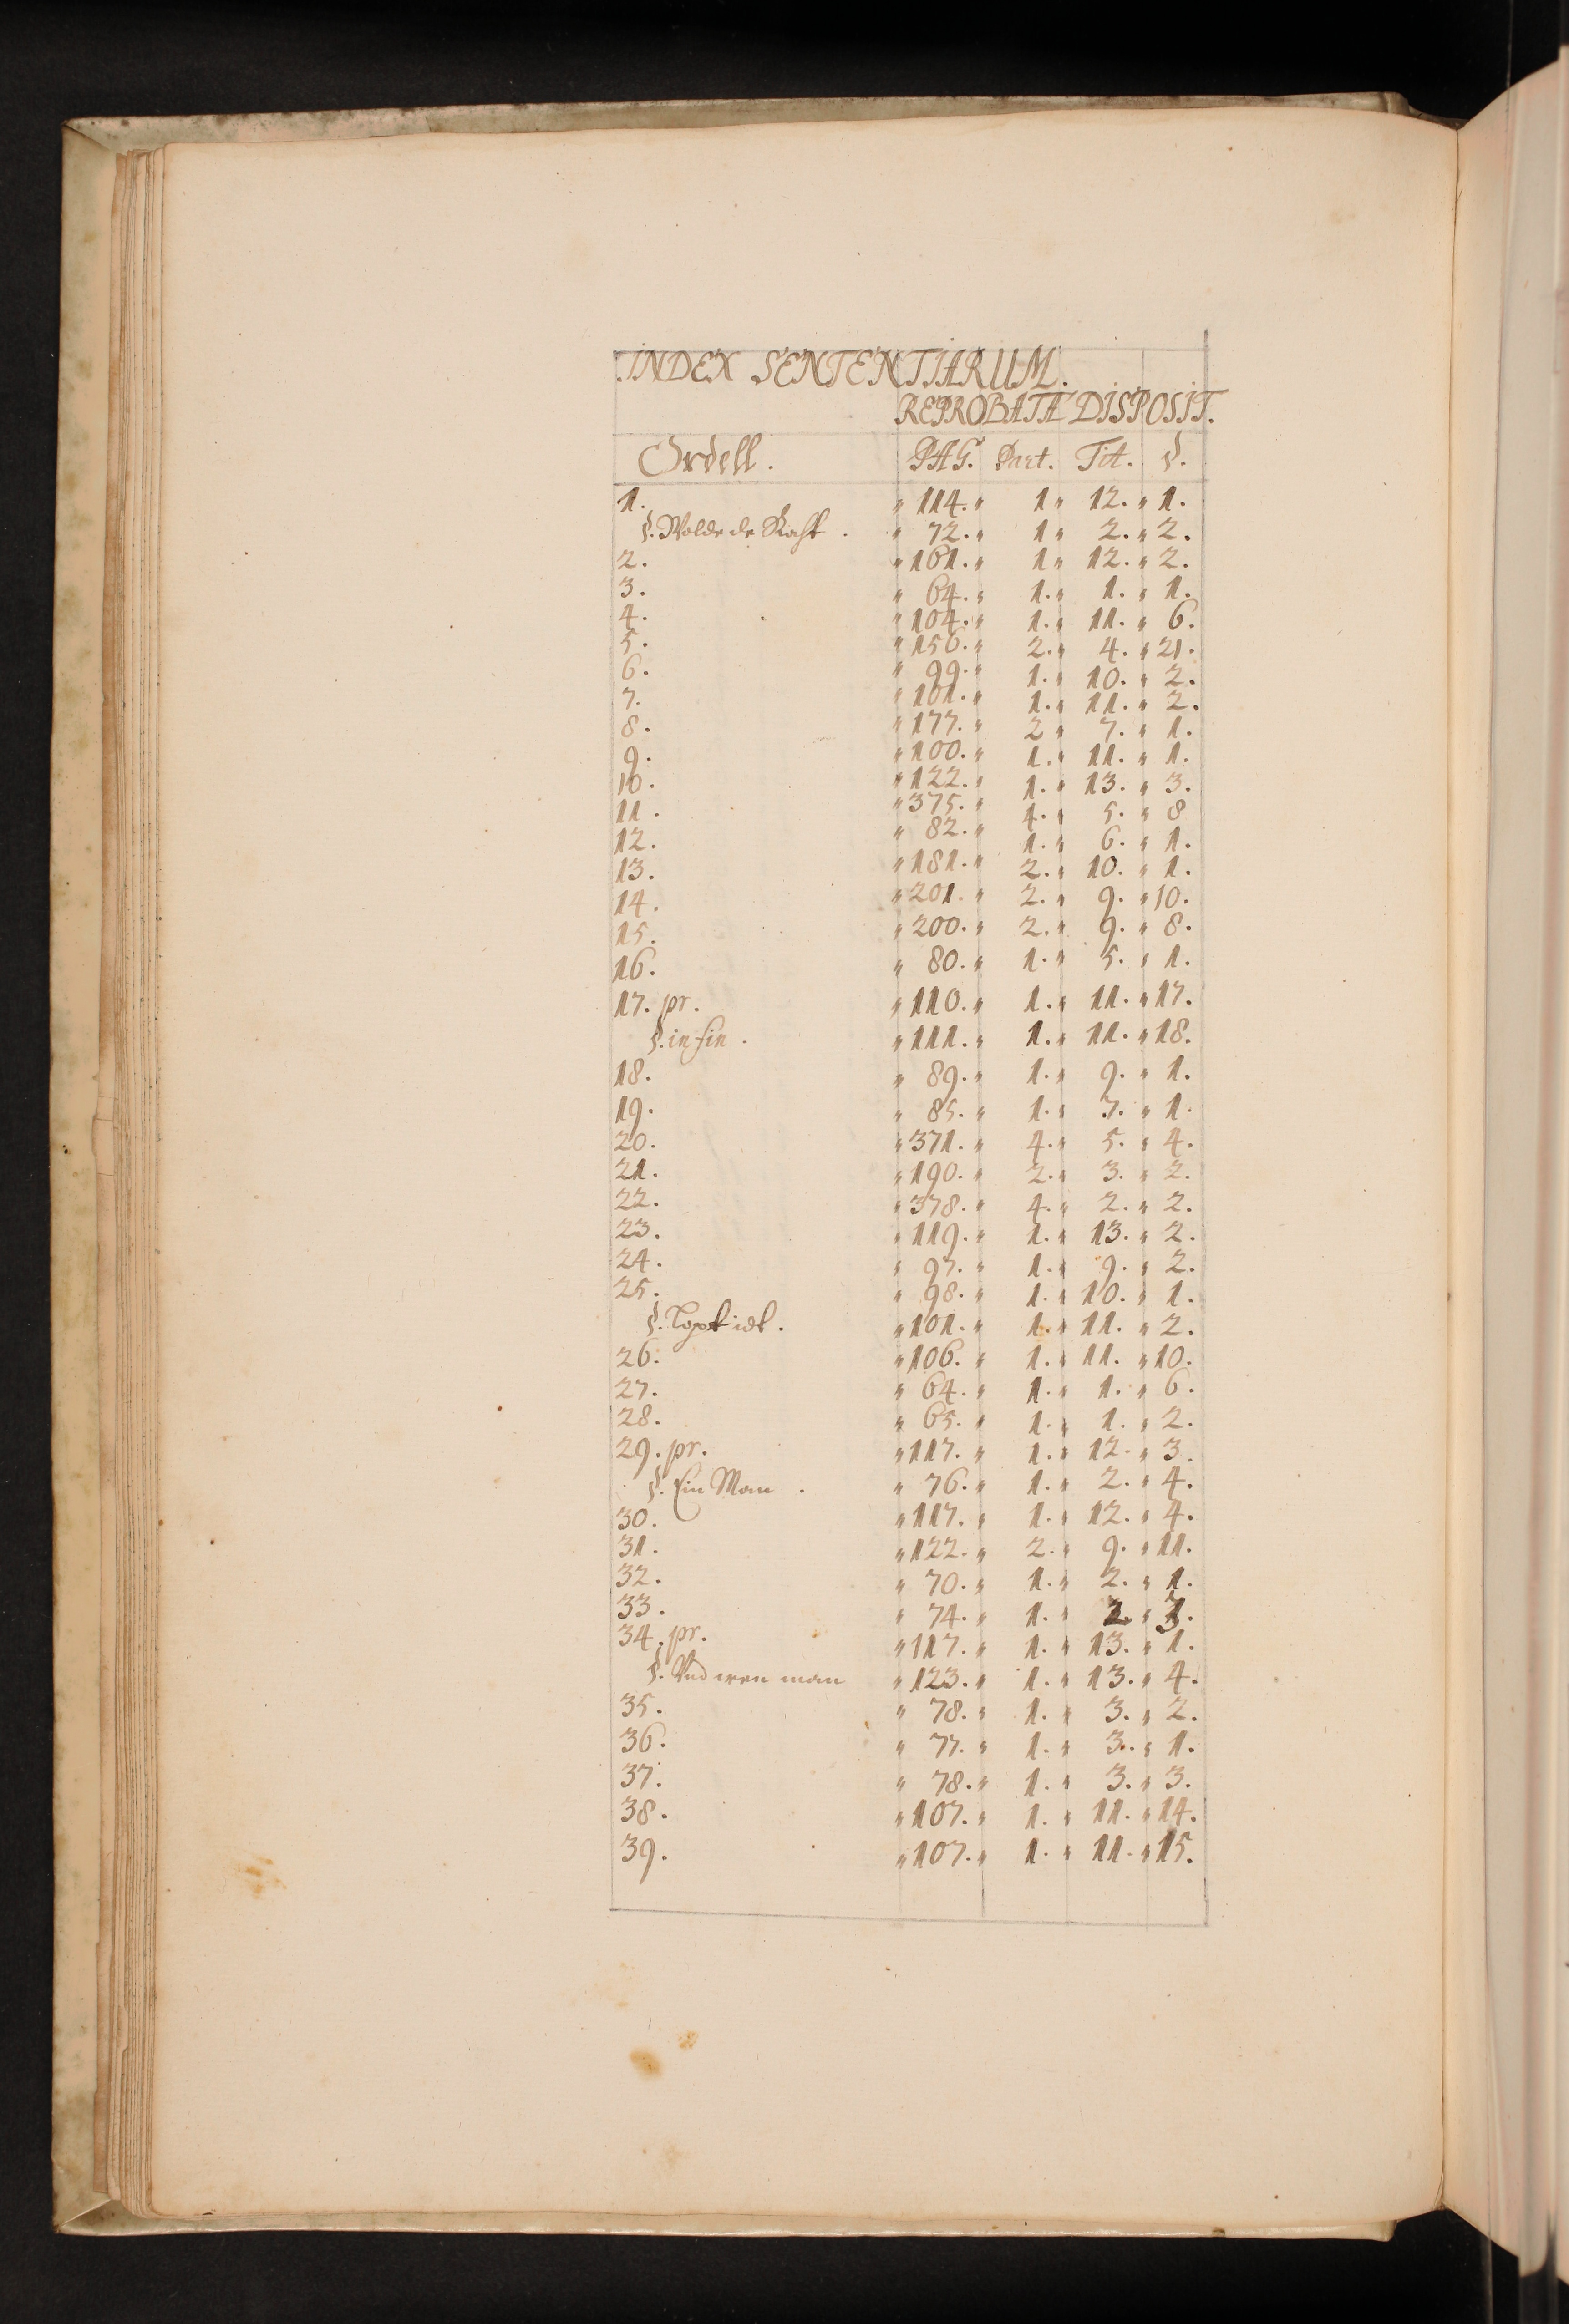 INDEX SENTENTIARUM.
REPROBATA DISPOSIT.
Ordell. PAG. Part. Tit. §.
1. " 114. " 1 " 12. " 1.
§. Wolde de Raht. " 72. " 1 " 2. " 2.
2. " 161. " 1 " 12. " 2.
3. " 64. " 1. " 1. " 1.
4. " 104. " 1. " 11. " 6.
5. " 156. " 2. " 4. " 21.
6. " 99. " 1. " 10. " 2.
7. " 101. " 1. " 11. " 2.
8. " 177. " 2 " 7. " 1.
9. " 100. " 1. " 11. " 1.
10. " 122. " 1. " 13. " 3.
11. " 375. " 4. " 5. " 8
12. " 82. " 1. " 6. " 1.
13. " 181. " 2. " 10. " 1.
14. " 201. " 2. " 9. " 10.
15. " 200. " 2. " 9. " 8.
16. " 80. " 1. " 5. " 1.
17. pr. " 110. " 1. " 11. " 17.
§. in fin. " 111. " 1. " 11. " 18.
18. " 89. " 1. " 9. " 1.
19. " 85. " 1. " 7. " 1.
20. " 371. " 4. " 5. " 4.
21. " 190. " 2. " 3. " 2.
22. " 378. " 4. " 2. " 2.
23. " 119. " 1. " 13. " 2.
24. " 97. " 1. " 9. " 2.
25. " 98. " 1. " 10. " 1.
§. " 101. " 1. " 11. " 2.
26. " 106. " 1. " 11. " 10.
27. " 64. " 1. " 1. " 6.
28. " 65. " 1. " 1. " 2.
29. pr. " 117. " 1. " 12. " 3.
§. Ein Man. " 76. " 1. " 2. " 4.
30. " 117. " 1. " 12. " 4.
31. " 122. " 2. " 9. " 11.
32. " 70. " 1. " 2. " 1.
33. " 74. " 1. " 2. " 3.
34. pr. " 117. " 1. " 13. " 1.
§. Vnd wen man " 123. " 1. " 13. " 4.
35. " 78. " 1. " 3. " 2.
36. " 77. " 1. " 3. " 1.
37. " 78. " 1. " 3. " 3.
38. " 107. " 1. " 11. " 14.
39. " 107. " 1. " 11. " 15.